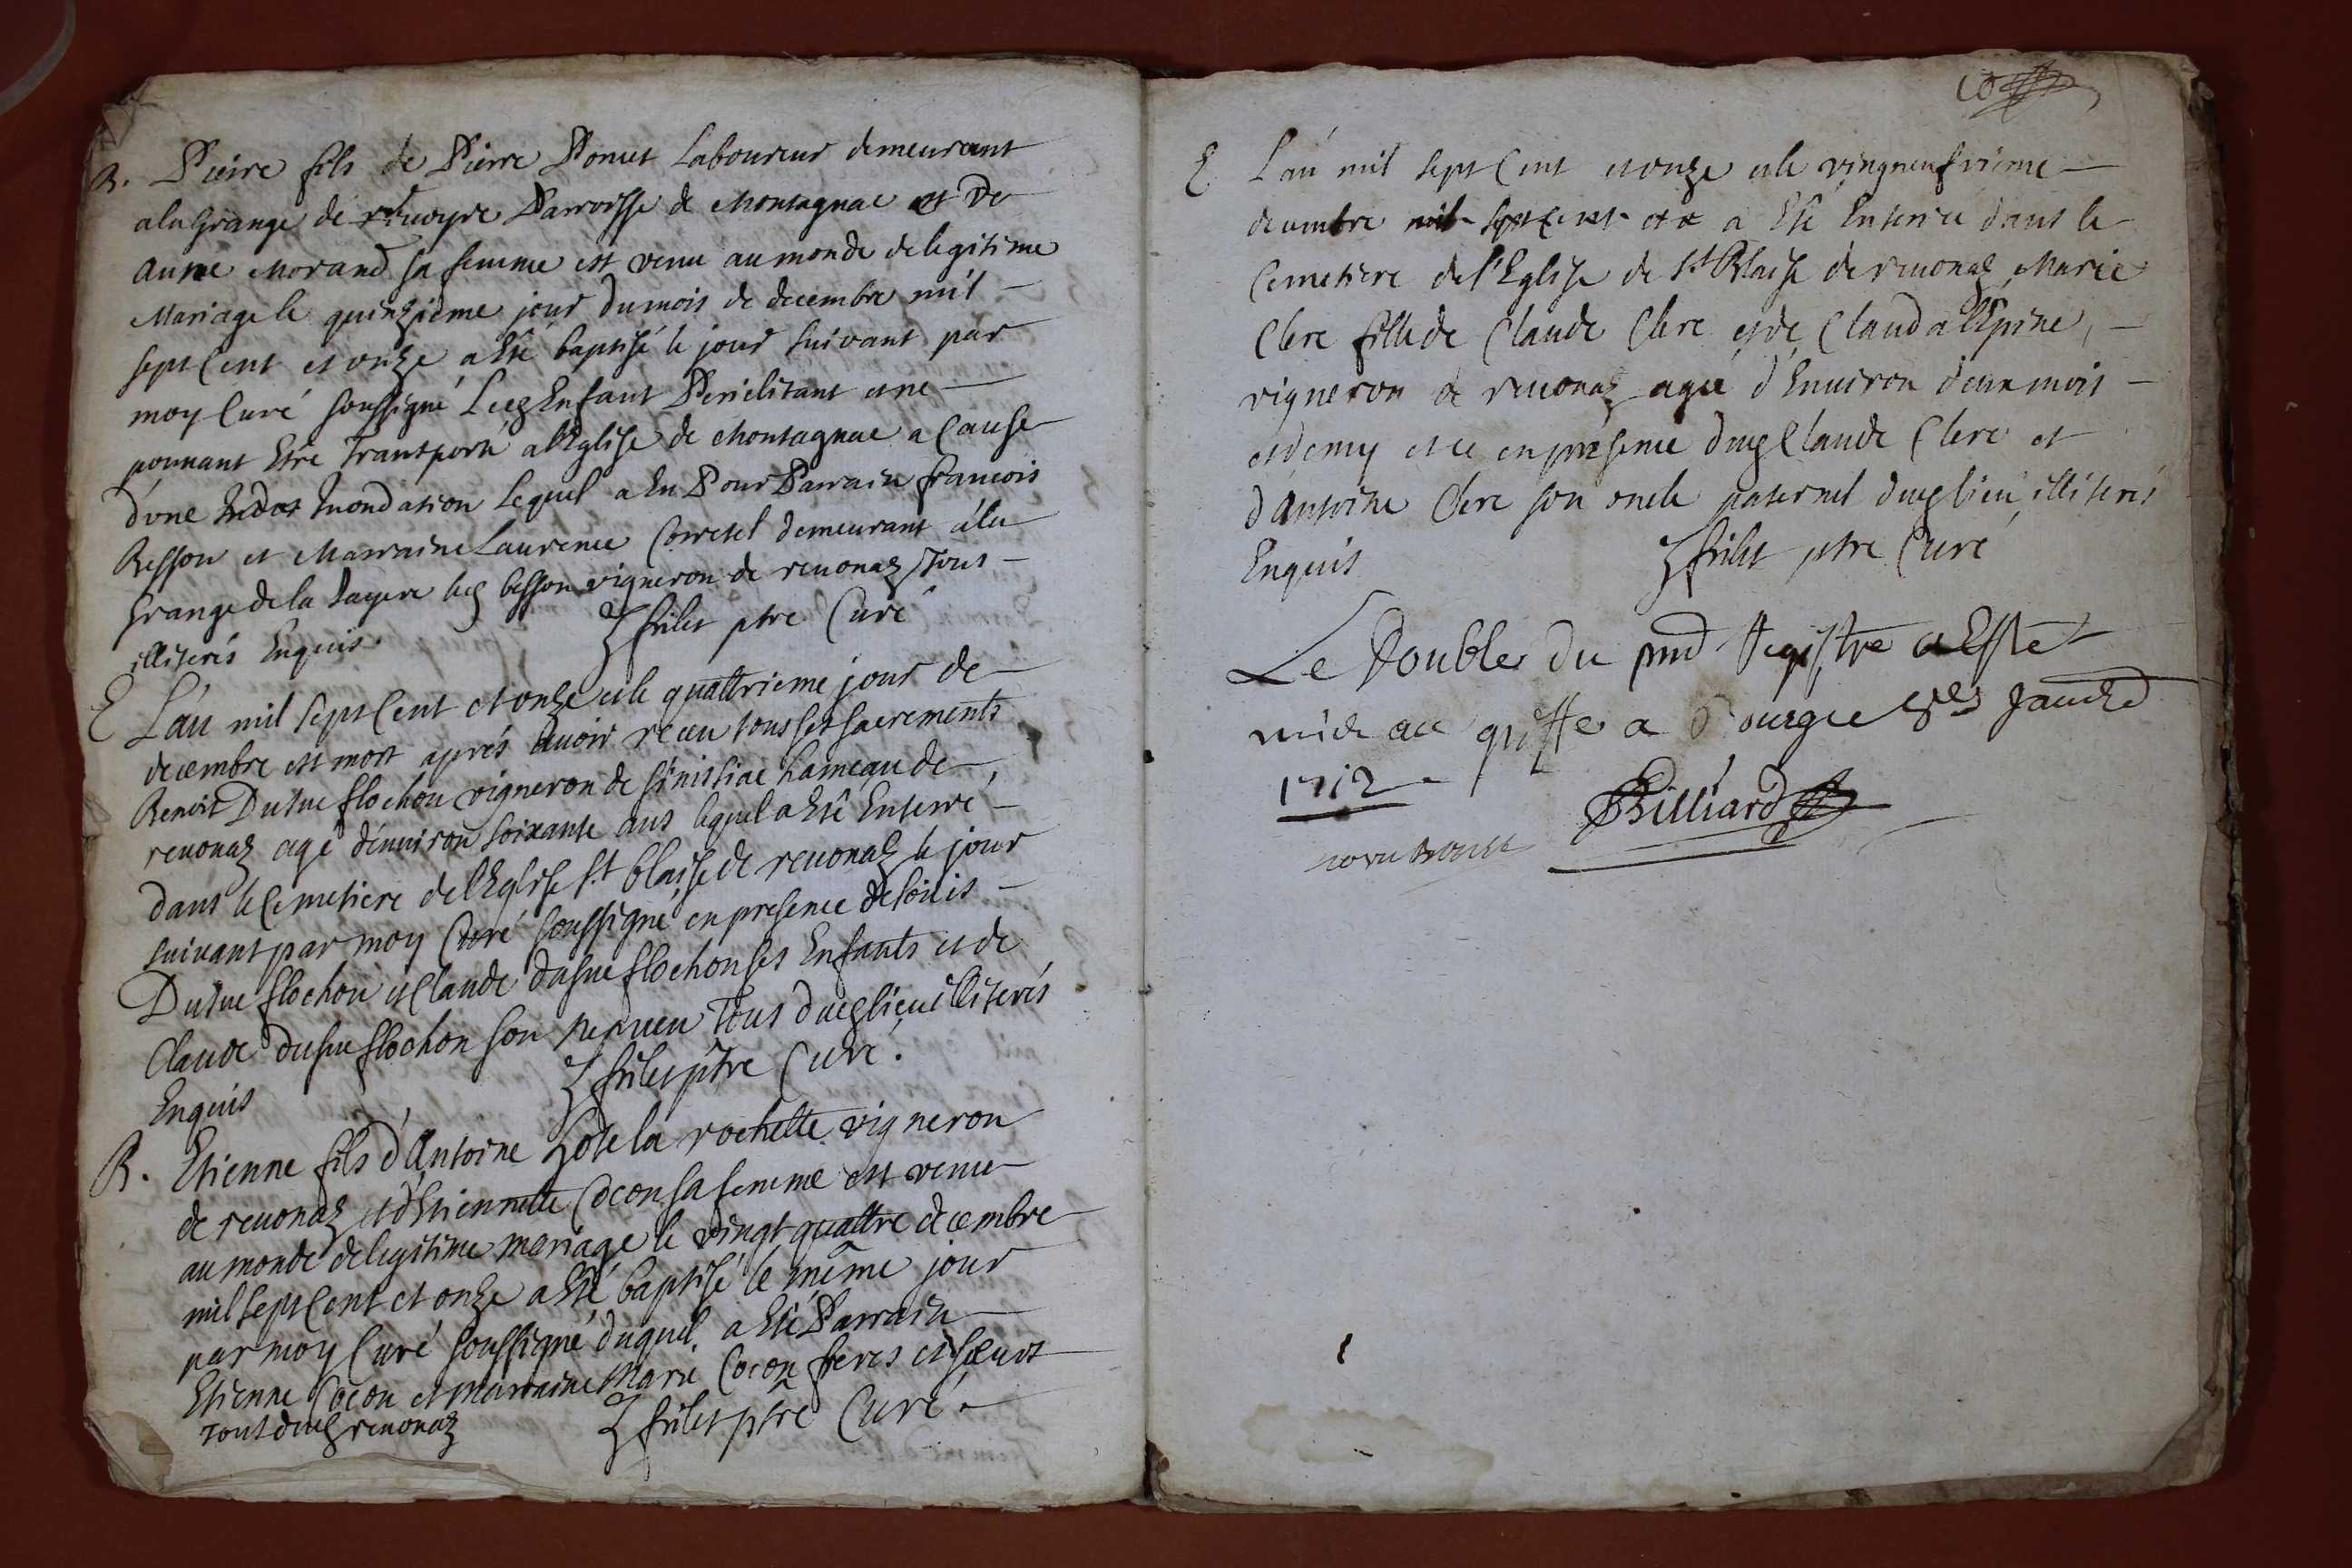 B. Pierre fils de Pierre Ponset Laboureur demeurant
a la Grange de Parroisse de Montagnac et De
Anne Morand sa femme est venu au monde de legitime
Mariage le quinzieme jour du mois de decembre mil
sept Cent et onze a Eté baptisé le jour suivant par
moy Curé soussigné Led Enfant Periclitant et ne
pouvant Etre Transporté a l'Eglise de Montagnac a Cause
d'une Inondation Lequel a Eu Pour Parrain francois
Besson et Marraine Laurence demeurant a la
Grange de la led besson vigneron de revonaz Tous
illiterés Enquis. frilet ptre Curé
E L'an mil sept Cent et onze et le quattrieme jour de
decembre est mort aprés avoir receu tous ses sacrements
Benoit Dusue flochon vigneron de hameau de
revonaz agé d'environ soixante ans lequel a Eté Enterré
dans le Cemetiere de l'Eglise St blaise de revonaz le jour
suivant par moy Curé soussigné en presence de loüis
Dusue flochon et Claude dusue flochon ses Enfants et de
Claude dusue flochon son nepveu Tous dud lieu illiterés
Enquis frilet ptre Curé.
B. Etienne fils d'Antoine la rochette vigneron
de revonaz et d'Etiennette Cocon sa femme est venu
au monde de legitime mariage le vingt quattre decembre
mil sept Cent et onze a Eté baptisé le même jour
par moy Curé soussigné duquel a Eté Parrain
Etienne Cocon et Marraine Marie Cocon freres et soeurs
Tout dud revonaz frilet ptre Curé.
E L'an mil sept Cent et onze et le vingneufvieme
decembre mil sept cent et a Eté Enterrée dans le
Cemetiere de l'Eglise de St Blaise de revonaz Marie
Clerc fille de Claude Clerc et de Clauda l'Epine,
vigneron de revonaz agée d'Environ deux mois
et demy et ce en présence dud Claude Clerc et
d'Antoine Clerc son oncle paternel dud lieu illiterés
Enquis frilet ptre Curé
Le Double du pnt Registre a Esté
mis au greffe a Bourg ce
1712
Billiard